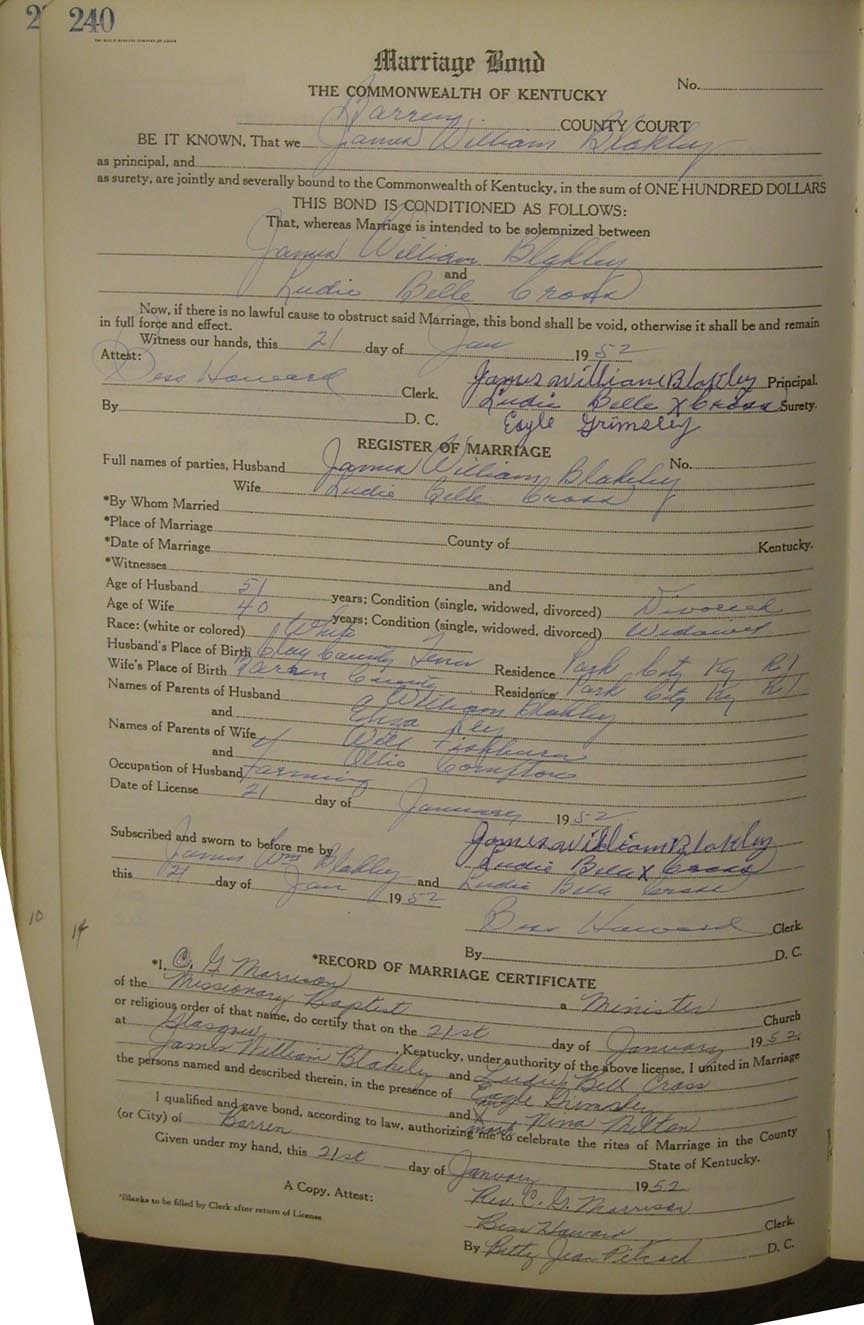 240
Marriage Bond
THE COMMONWEALTH OF KENTUCKY
No.
Barren COUNTY COURT
BE IT KNOWN, That we James William Blakley
as principal, and
as surety, are jointly and severally bound to the Commonwealth of Kentucky, in the sum of ONE HUNDRED DOLLARS
THIS BOND IS CONDITIONED AS FOLLOWS:
That, whereas Marriage is intended to be solemnized between
James William Blakley
and
Ludie Belle Cross
Now, if there is no lawful cause to obstruct said Marriage, this bond shall be void, otherwise it shall be and remain
in full force and effect.
Witness our hands, this 21 day of Jan 1952
Attest:
Bess Howard Clerk. James William Blakley Principal.
Ludie Belle X Cross Surety.
By D. C. Esyle Grimsley
REGISTER OF MARRIAGE
Full names of parties, Husband James William Blakley No.
Wife Ludie Belle Cross
*By Whom Married
*Place of Marriage
*Date of Marriage County of Kentucky.
*Witnesses and
Age of Husband 51 years; Condition (single, widowed, divorced) Divorced
Age of Wife 40 years; Condition (single, widowed, divorced) Widowed
Race: (white or colored) White
Husband's Place of Birth Clay County Tenn Residence Park City Ky R1
Wife's Place of Birth Barren County Residence Park City Ky R1
Names of Parents of Husband William Blakley
and Eliza
Names of Parents of Wife Will Fishburn
and Ollie Compton
Occupation of Husband Farming
Date of License 21 day of January 1952
Subscribed and sworn to before me by James William Blakley
James Wm Blakley and Ludie Belle X Cross
Ludie Belle Cross
this 21 day of Jan 1952
Bess Howard Clerk.
By D. C.
10
14
*RECORD OF MARRIAGE CERTIFICATE
*I, C. G. Morrison a Minister
of the Missionary Baptist Church
or religious order of that name, do certify that on the 21st day of January 1952.
at Glasgow, Kentucky, under authority of the above license, I united in Marriage
James William Blakely and Ludie Bell Cross
the persons named and described therein, in the presence of Grimsley
and Nina Milton
I qualified and gave bond, according to law, authorizing me to celebrate the rites of Marriage in the County
(or City) of Barren State of Kentucky.
Given under my hand, this 21st day of January 1952
Rev. C. G. Morrison
A Copy, Attest:
Bess Howard Clerk.
*Blanks to be filled by Clerk after return of License
By Betty Jean Pitcock D. C.